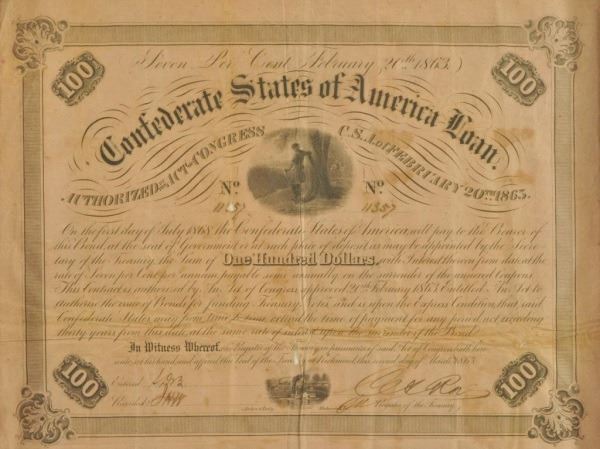 100 Seven Per Cent. February 20th 1863. 100
Confederate States of America Loan.
AUTHORIZED BY ACT OF CONGRESS C.S.A. of FEBRUARY 20TH 1863.
No No
11357 11357
On the first day of July 1868 the Confederate States of America, will pay to the Bearer of
this Bond, at the seat of Government or at such place of deposit as may be appointed by the Secre-
tary of the Treasury, the Sum of One Hundred Dollars, with Interest thereon from date, at the
rate of Seven per Cent per annum, payable semi annually on the surrender of the annexed Coupons
This Contract is authorised by An Act of Congress approved 20th February 1863, Entitled "An Act to
authorise the issue of Bonds for funding Treasury Notes" and is upon the Express Condition, that said
Confederate States may from time to time extend the time of payment for any period not exceeding
thirty years from this date, at the same rate of interest upon the surrender of the Bond.
In Witness Whereof, the Register of the Treasury in pursuance of said Act of Congress hath here-
unto set his hand, and affixed the Seal of the Treasury at Richmond, this second day of March 1863.
100 Entered
Recorded Register of the Treasury. 100